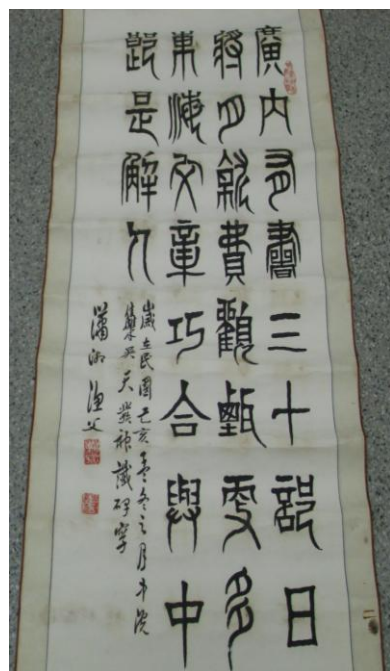 廣內有書三十部日
將月就費觀甄多
東海文章巧合與中
郎是解人
歲在民國己亥孟冬之月中浣
集吳天發神讖碑字
瀟湘漁父